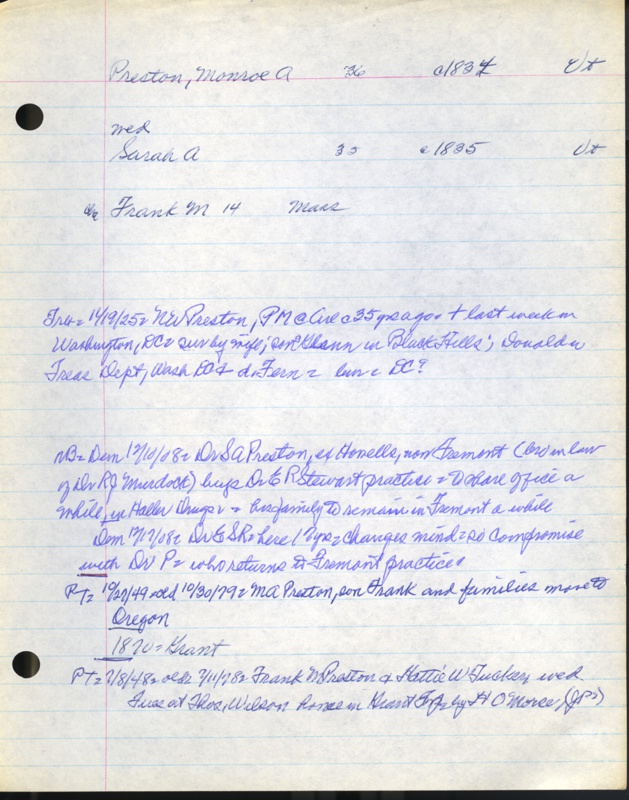 Preston, Monroe A 36 c1834 Vt
wed
Sarah A 35 c1835 Vt
Frank M 14 Mass
NW Preston, PM c 35 yrs ago + last week in
Washington, DC = sur by wife; son in Black Hills; Donald in
Treas Dept, Wash DC + d. Fern = bur = DC?
NB = Dem 12/10/08 = Dr SA Preston, of Howells, now Fremont (bro in law
of Dr RJ Murdock) buys Dr E R Stewart practice = to share office a
while, in Haller Drugs = his family to remain in Fremont a while
Dem 12/17/08 = Dr E S R = here 12 yrs = changes mind = so compromise
with Dr P = who returns to Fremont practice
PT = 10/27/49 = old 10/30/79 = MA Preston, son Frank and families move to
Oregon
1870 = Grant
PT = 7/8/48 = old = 7/11/78 = Frank M Preston & Hattie W Tucker, wed
Tues at Thos, Wilson home in Grant Twp by H O Morse, (JP)